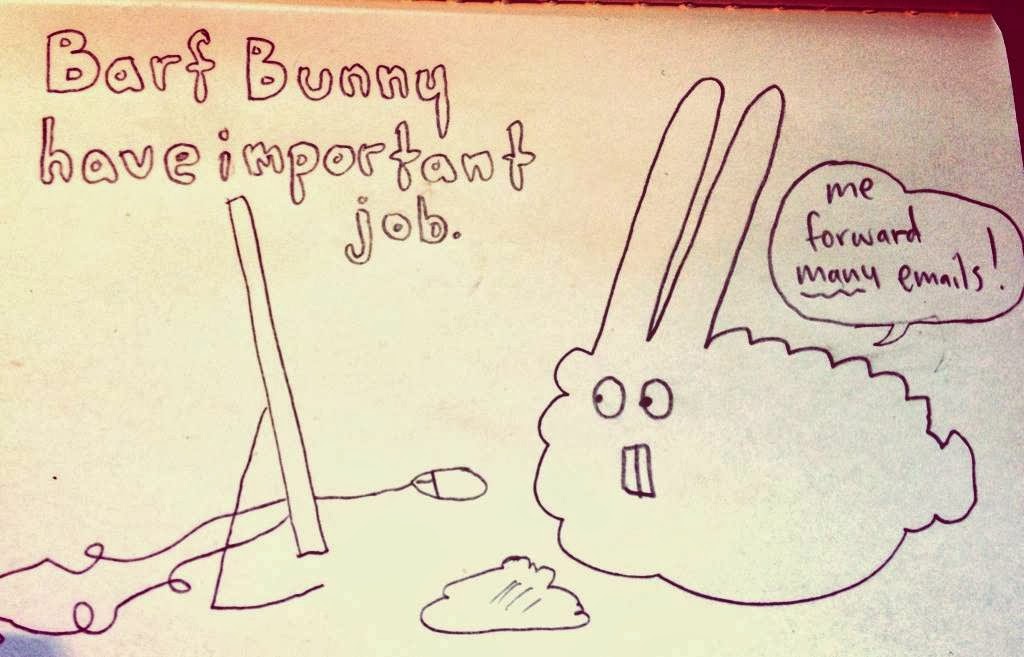 Barf Bunny
have important
job.
me
forward
many emails!